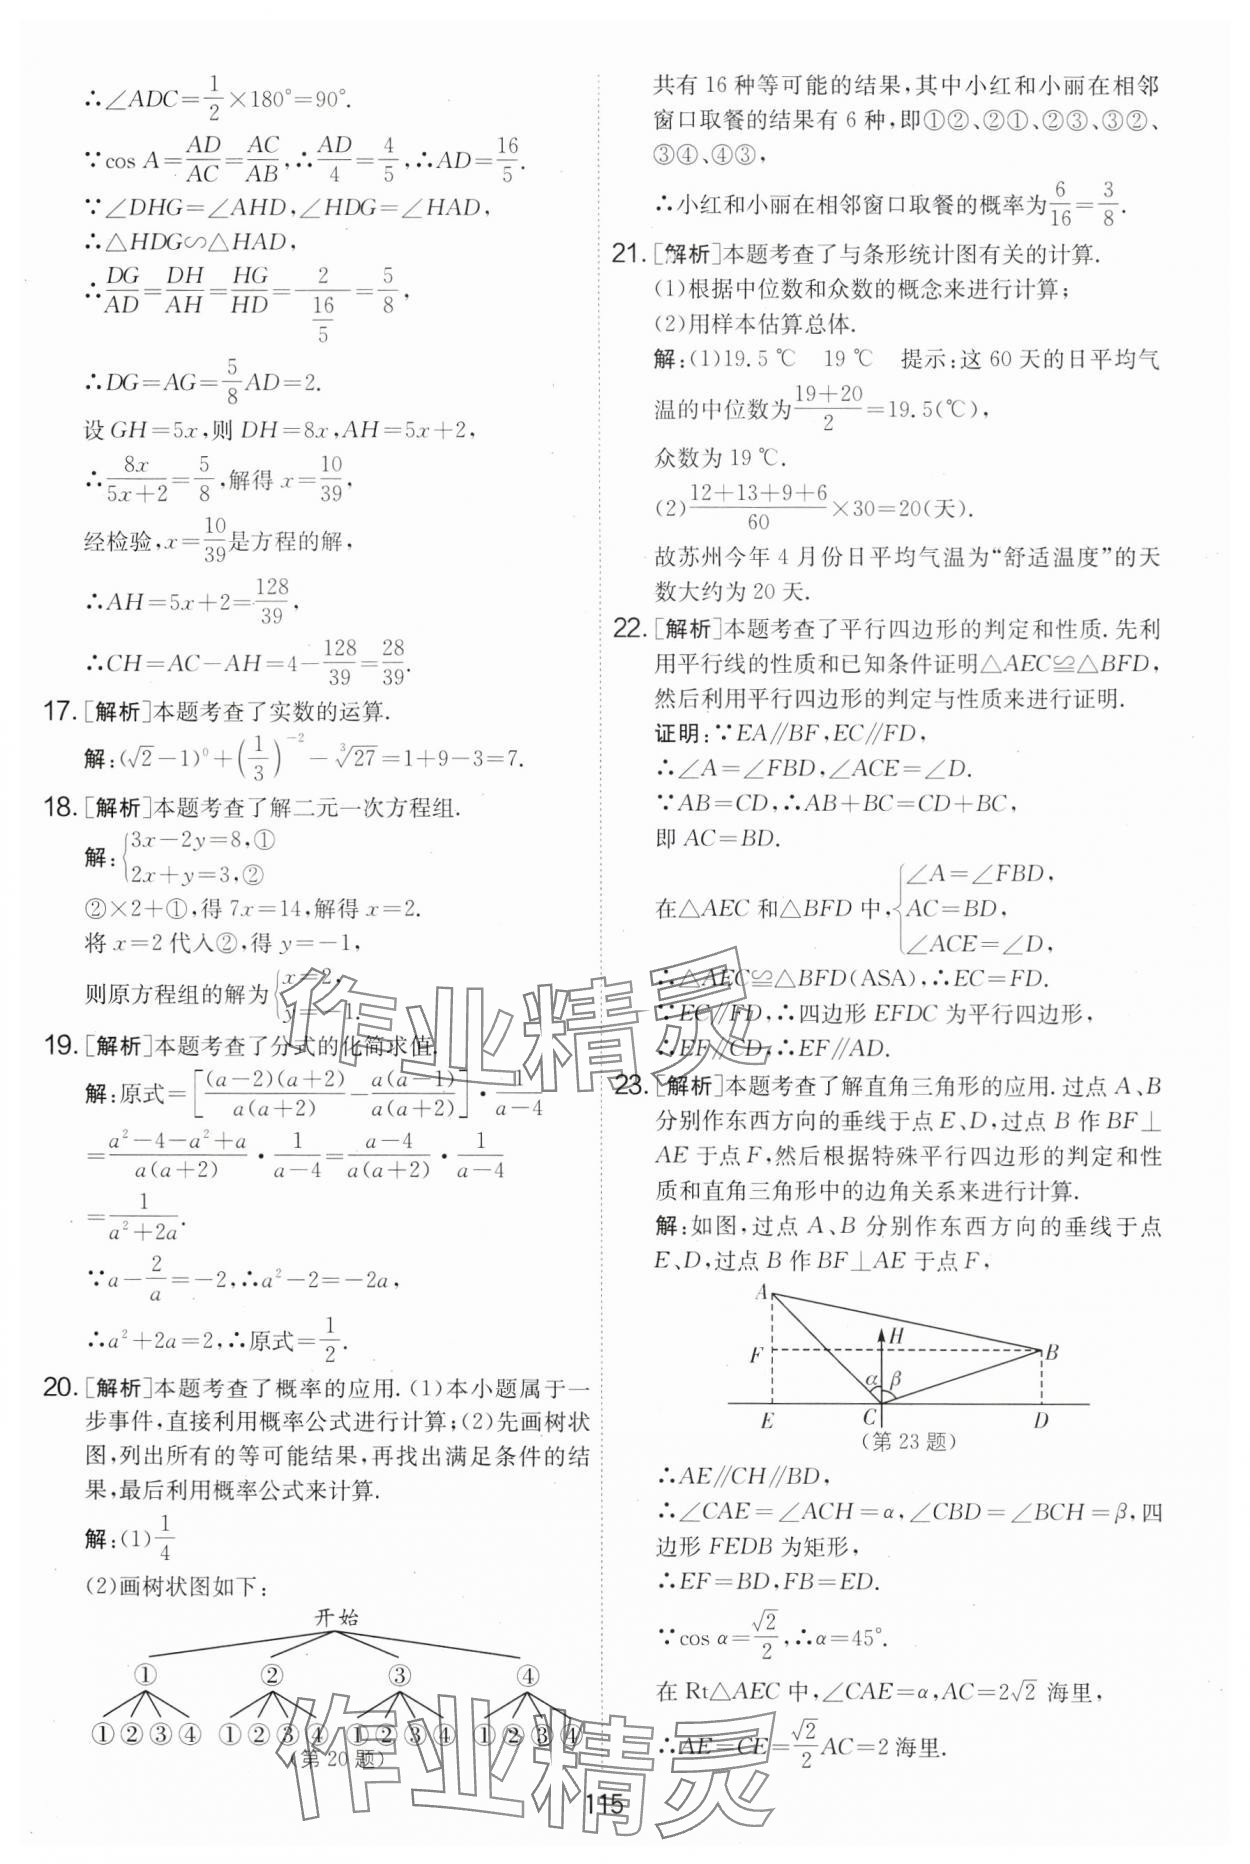 ∴∠ADC=1/2×180°=90°.
∵cos A=AD/AC=AC/AB,∴AD/4=4/5,∴AD=16/5.
∵∠DHG=∠AHD,∠HDG=∠HAD,
∴△HDG∽△HAD,
∴DG/AD=DH/AH=HG/HD=2/(16/5)=5/8,
∴DG=AG=5/8AD=2.
设GH=5x,则DH=8x,AH=5x+2,
∴8x/(5x+2)=5/8,解得x=10/39,
经检验,x=10/39是方程的解,
∴AH=5x+2=128/39,
∴CH=AC-AH=4-128/39=28/39.
17.[解析]本题考查了实数的运算.
解:(√2-1)⁰+(1/3)⁻²-∛27=1+9-3=7.
18.[解析]本题考查了解二元一次方程组.
解:{3x-2y=8,①
2x+y=3,②
②×2+①,得7x=14,解得x=2.
将x=2代入②,得y=-1,
则原方程组的解为{x=2,
y=-1.
19.[解析]本题考查了分式的化简求值.
解:原式=[(a-2)(a+2)/a(a+2)-a(a-1)/a(a+2)]·1/(a-4)
=(a²-4-a²+a)/a(a+2)·1/(a-4)=(a-4)/a(a+2)·1/(a-4)
=1/(a²+2a).
∵a-2/a=-2,∴a²-2=-2a,
∴a²+2a=2,∴原式=1/2.
20.[解析]本题考查了概率的应用.(1)本小题属于一
步事件,直接利用概率公式进行计算;(2)先画树状
图,列出所有的等可能结果,再找出满足条件的结
果,最后利用概率公式来计算.
解:(1)1/4
(2)画树状图如下:
开始
① ② ③ ④
①②③④ ①②③④ ①②③④ ①②③④
(第20题)
共有16种等可能的结果,其中小红和小丽在相邻
窗口取餐的结果有6种,即①②、②①、②③、③②、
③④、④③,
∴小红和小丽在相邻窗口取餐的概率为6/16=3/8.
21.[解析]本题考查了与条形统计图有关的计算.
(1)根据中位数和众数的概念来进行计算;
(2)用样本估算总体.
解:(1)19.5 ℃ 19 ℃ 提示:这60天的日平均气
温的中位数为(19+20)/2=19.5(℃),
众数为19 ℃.
(2)(12+13+9+6)/60×30=20(天).
故苏州今年4月份日平均气温为“舒适温度”的天
数大约为20天.
22.[解析]本题考查了平行四边形的判定和性质.先利
用平行线的性质和已知条件证明△AEC≌△BFD,
然后利用平行四边形的判定与性质来进行证明.
证明:∵EA∥BF,EC∥FD,
∴∠A=∠FBD,∠ACE=∠D.
∵AB=CD,∴AB+BC=CD+BC,
即AC=BD.
在△AEC和△BFD中,{∠A=∠FBD,
AC=BD,
∠ACE=∠D,
∴△AEC≌△BFD(ASA),∴EC=FD.
∵EC∥FD,∴四边形EFDC为平行四边形,
∴EF∥CD,∴EF∥AD.
23.[解析]本题考查了解直角三角形的应用.过点A、B
分别作东西方向的垂线于点E、D,过点B作BF⊥
AE于点F,然后根据特殊平行四边形的判定和性
质和直角三角形中的边角关系来进行计算.
解:如图,过点A、B分别作东西方向的垂线于点
E、D,过点B作BF⊥AE于点F,
A
H
F B
α β
E C D
(第23题)
∴AE∥CH∥BD,
∴∠CAE=∠ACH=α,∠CBD=∠BCH=β,四
边形FEDB为矩形,
∴EF=BD,FB=ED.
∵cos α=√2/2,∴α=45°.
在Rt△AEC中,∠CAE=α,AC=2√2海里,
∴AE=CE=√2/2AC=2海里.
115
作业精灵
作业精灵